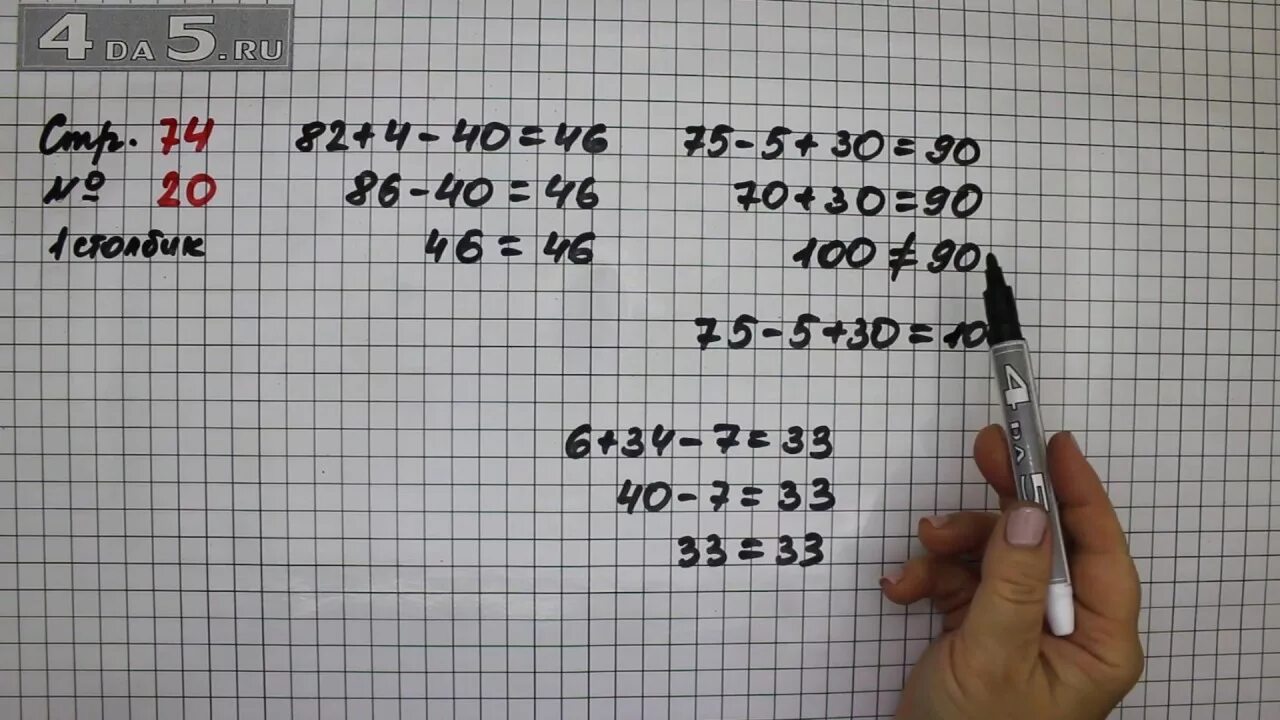 4DA5.RU
Стр. 74
№ 20
1 столбик
82+4-40=46
86-40=46
46=46
75-5+30=90
70+30=90
100≠90
75-5+30=10
6+34-7=33
40-7=33
33=33
4DA5